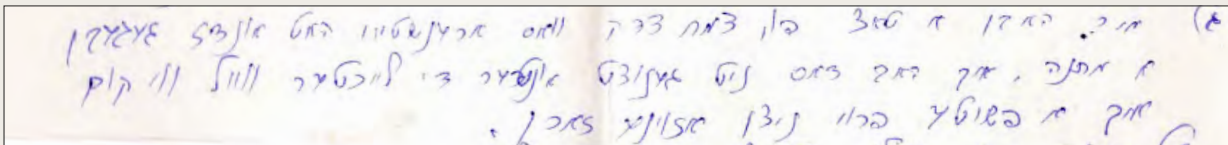 ג) מיר האבן א טאצ פון צמח צדק וואס ארענשטיין האט אונדז געגעבן
א מתנה. איך האב דאס ניט גענוצט אונטער די לייכטער ווייל ווי קום
איך א פשוטע פרוי ניצן אזוינע זאכן.